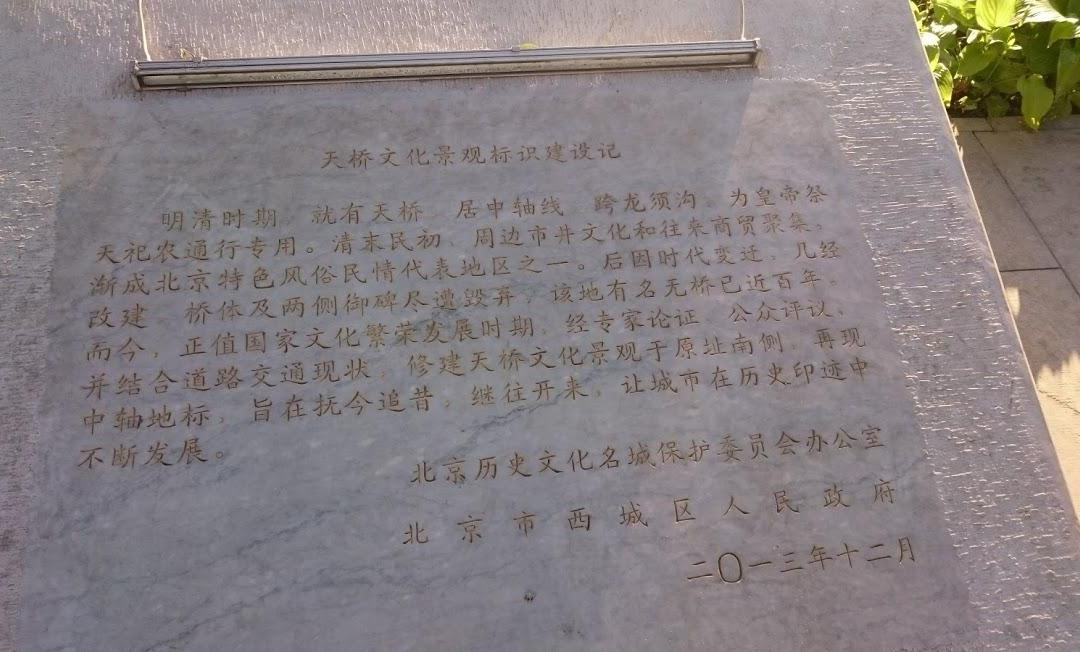 天桥文化景观标识建设记
明清时期，就有天桥，居中轴线，跨龙须沟，为皇帝祭
天祀农通行专用。清末民初，周边市井文化和往来商贸聚集，
渐成北京特色风俗民情代表地区之一。后因时代变迁，几经
改建，桥体及两侧御碑尽遭毁弃，该地有名无桥已近百年。
而今，正值国家文化繁荣发展时期，经专家论证，公众评议，
并结合道路交通现状，修建天桥文化景观于原址南侧，再现
中轴地标，旨在抚今追昔，继往开来，让城市在历史印迹中
不断发展。
北京历史文化名城保护委员会办公室
北京市西城区人民政府
二〇一三年十二月